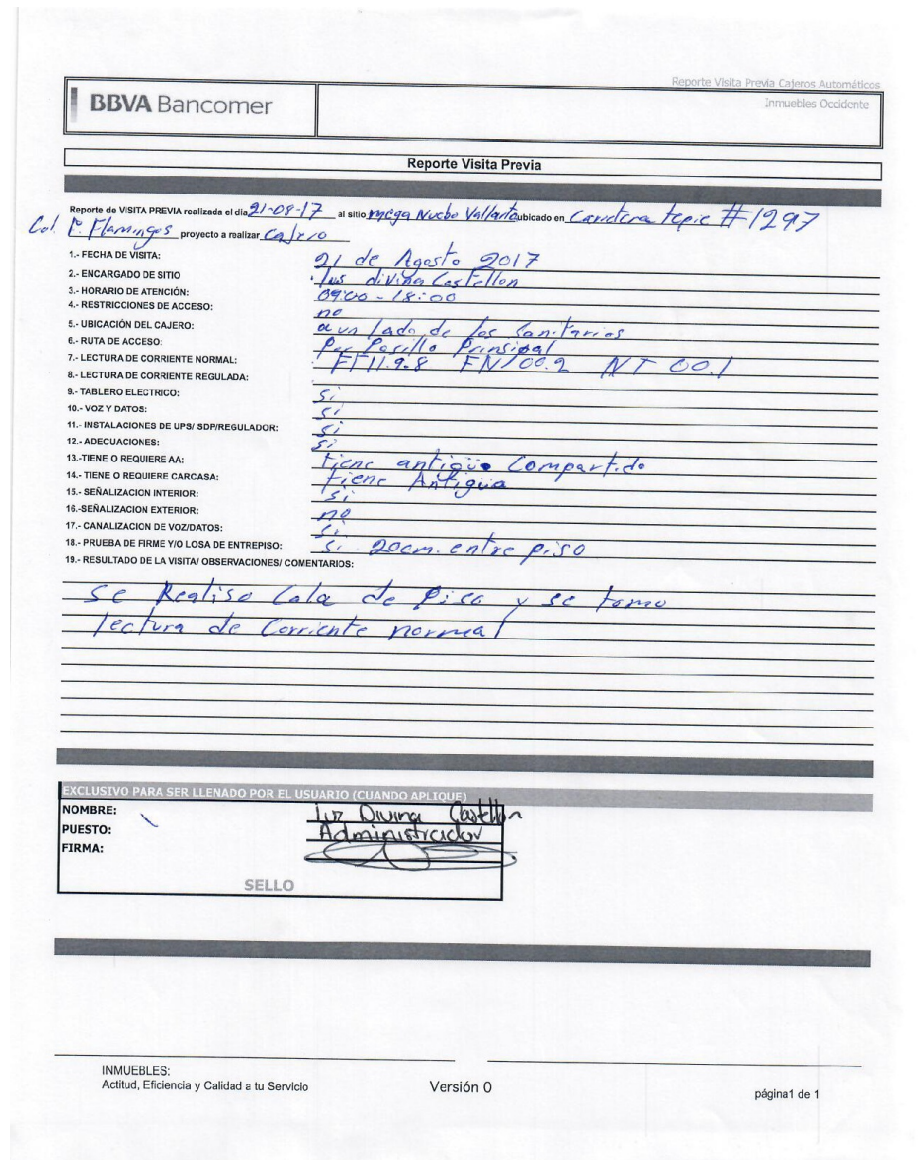 Reporte Visita Previa Cajeros Automáticos
BBVA Bancomer
Inmuebles Occidente
Reporte Visita Previa
Reporte de VISITA PREVIA realizada el dia 21-08-17 al sitio mega Nuebo Vallarta ubicado en Carretera tepic #1297
Col. F. Flamingos proyecto a realizar Cajero
1.- FECHA DE VISITA: 21 de Agosto 2017
2.- ENCARGADO DE SITIO Lus divina Castellon
3.- HORARIO DE ATENCIÓN: 09:00 - 18:00
4.- RESTRICCIONES DE ACCESO: no
5.- UBICACIÓN DEL CAJERO: a un lado de los Sanitarios
6.- RUTA DE ACCESO: Por Pasillo Prinsipal
7.- LECTURA DE CORRIENTE NORMAL: FT 119.8 FN/00.2 NT 00.1
8.- LECTURA DE CORRIENTE REGULADA:
9.- TABLERO ELECTRICO: Si
10.- VOZ Y DATOS: si
11.- INSTALACIONES DE UPS/ SDP/REGULADOR: si
12.- ADECUACIONES: si
13.-TIENE O REQUIERE AA: tiene antigüo Compartido
14.- TIENE O REQUIERE CARCASA: tiene Antigua
15.- SEÑALIZACION INTERIOR: si
16.-SEÑALIZACION EXTERIOR: no
17.- CANALIZACION DE VOZ/DATOS: si
18.- PRUEBA DE FIRME Y/O LOSA DE ENTREPISO: si 20cm. entre piso
19.- RESULTADO DE LA VISITA/ OBSERVACIONES/ COMENTARIOS:
Se Realiso Cala de Piso y se tomo
lectura de Corriente normal
EXCLUSIVO PARA SER LLENADO POR EL USUARIO (CUANDO APLIQUE)
NOMBRE: Luz Divina Castellon
PUESTO: Administrador
FIRMA:
SELLO
INMUEBLES:
Actitud, Eficiencia y Calidad a tu Servicio
Versión 0
página1 de 1